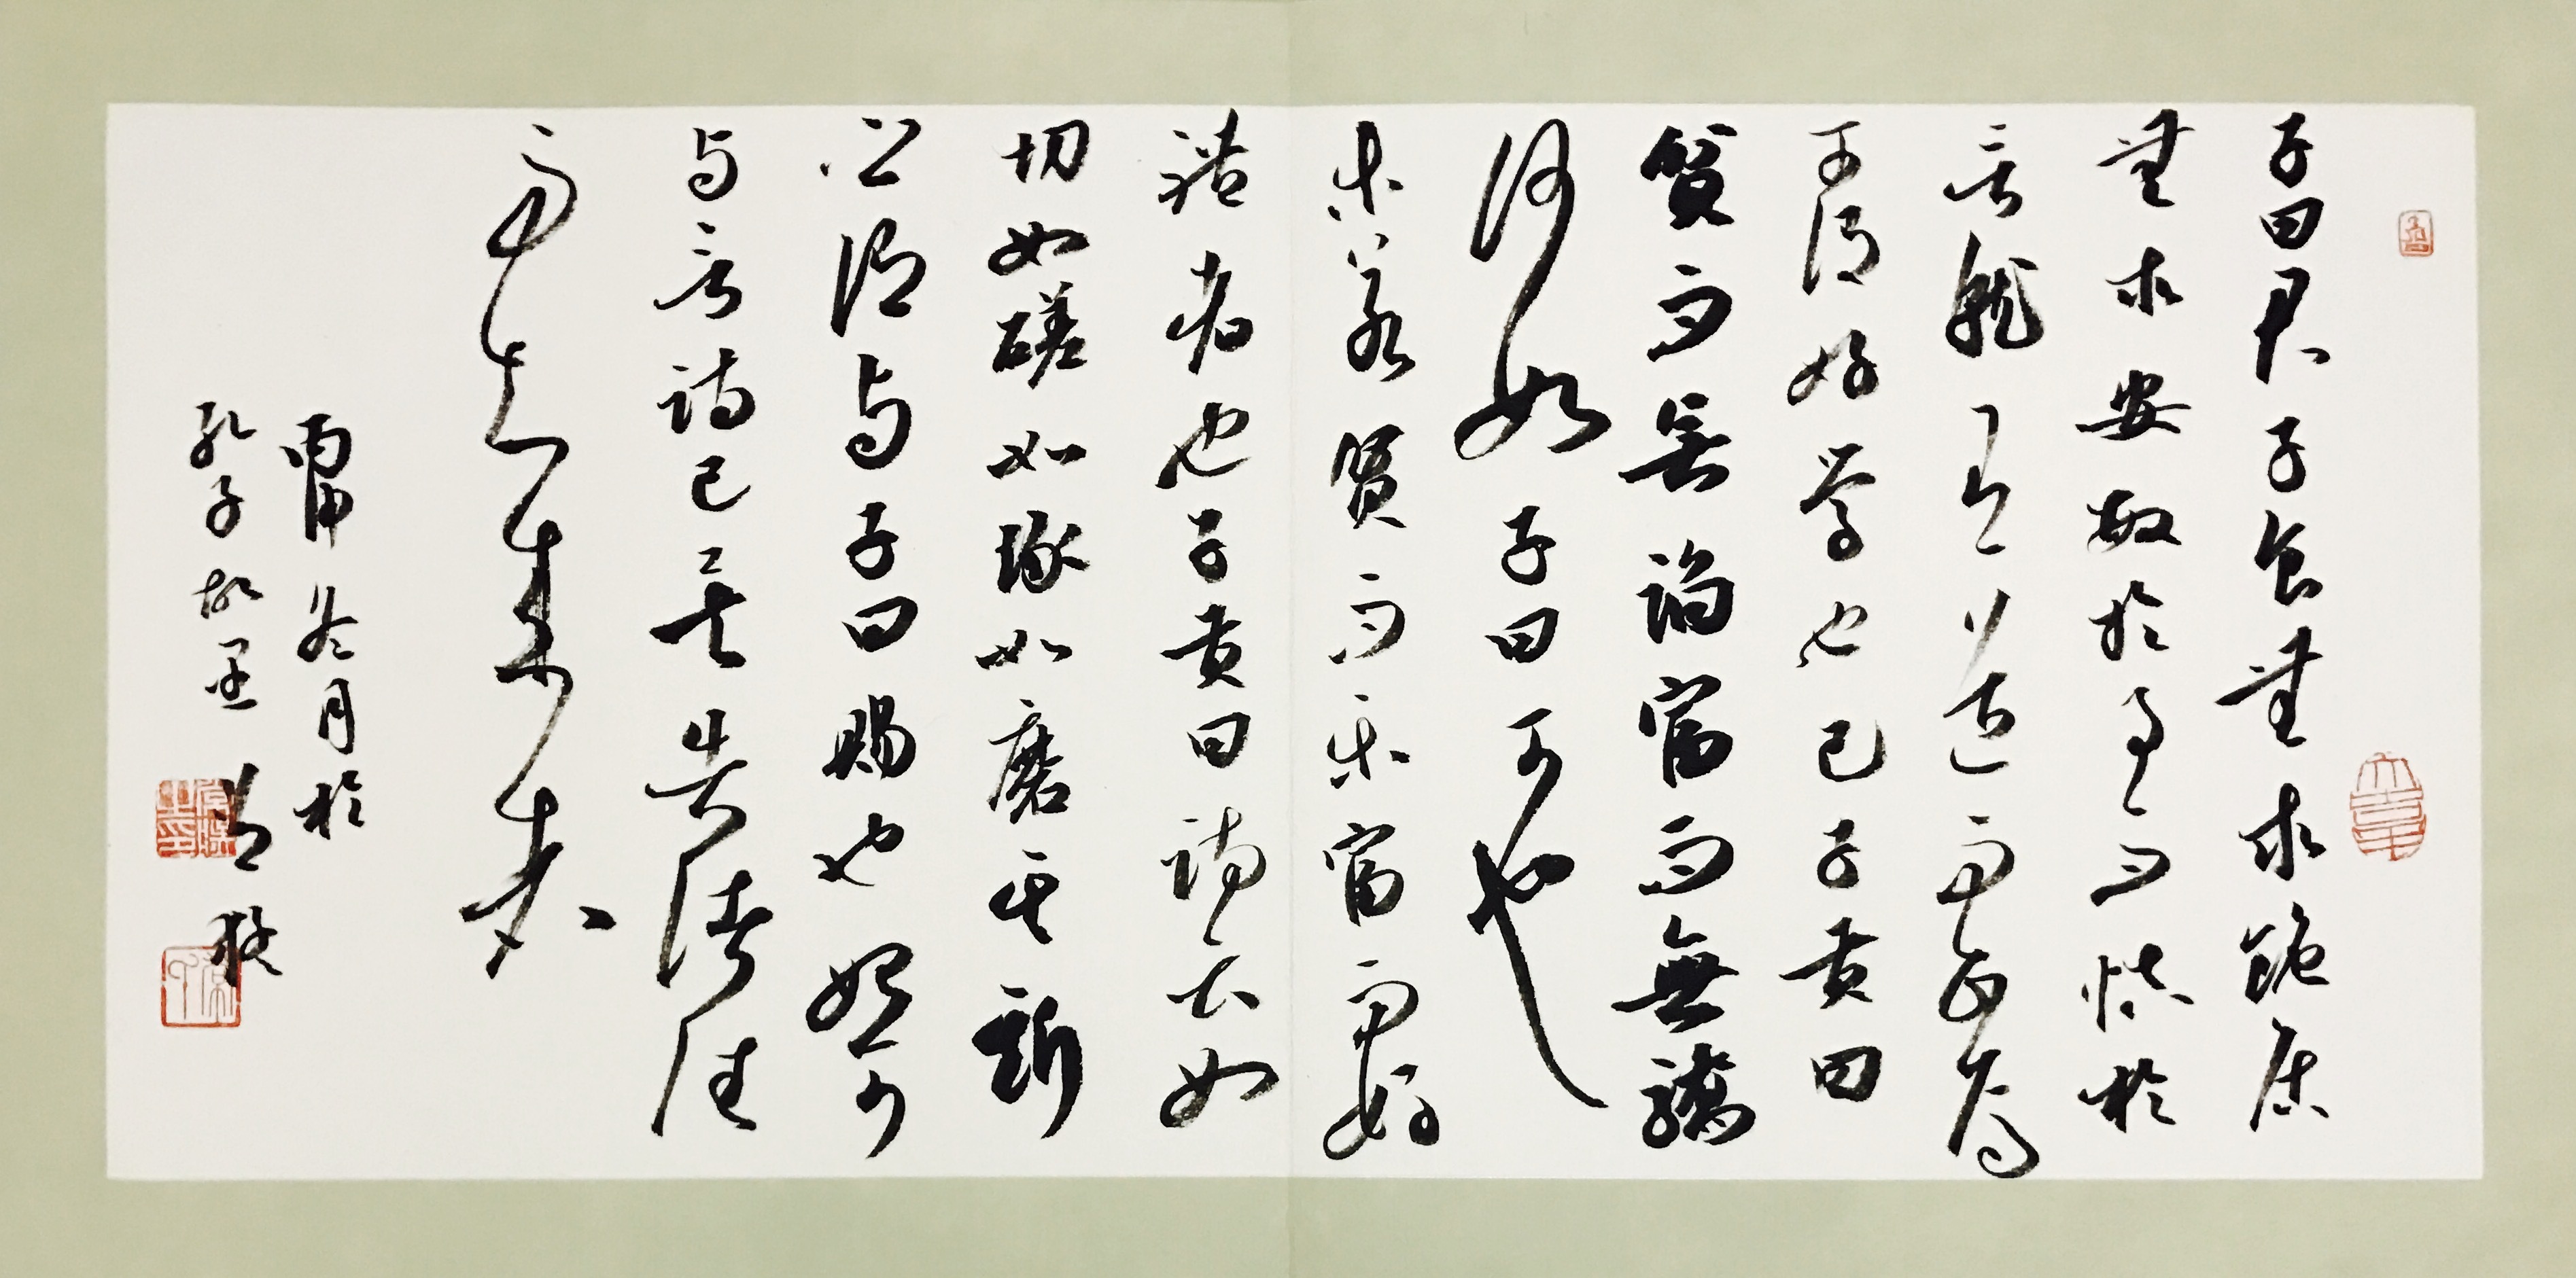 子曰君子食無求飽居
無求安敏於事而慎於
言就有道而正焉
可謂好學也已子貢曰
貧而無諂富而無驕
何如子曰可也
未若貧而樂富而好
禮者也子貢曰詩云如
切如磋如琢如磨其斯
之謂与子曰賜也始可
与言詩已矣告諸往
而知來者
丙申冬月於
孔子故里